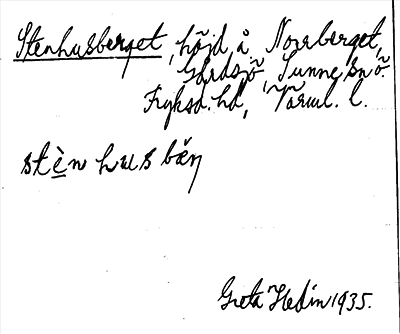 Stenhusberget, höjd å Norrberget,
Gårdsjö, Sunne sn ö.
Fryksd. hd, Värml. l.
stènhusbæ̌ŋ
Greta Hedin 1935.